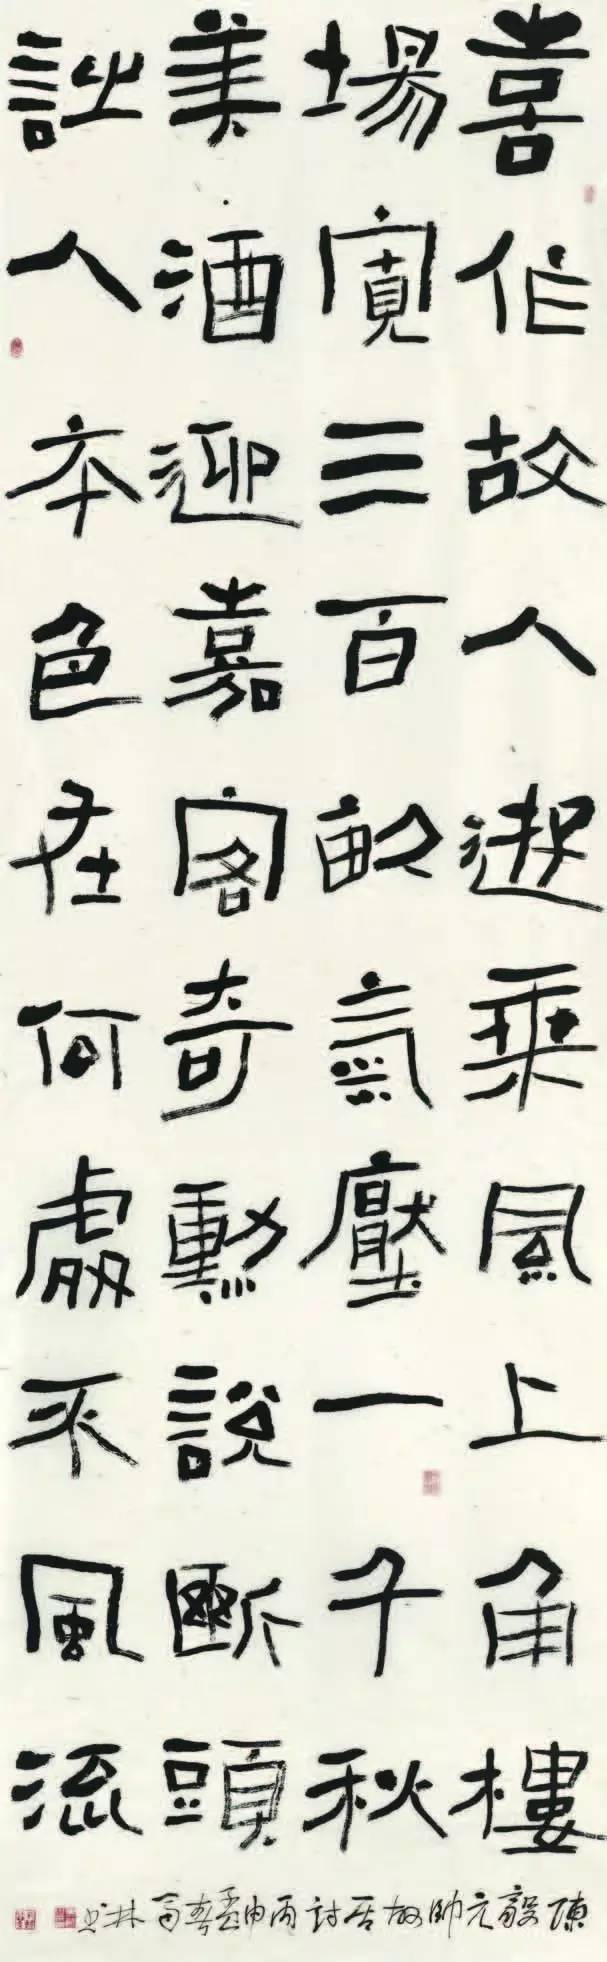 喜作故人遊乘風上角樓
場寬三百畝氣壓一千秋
美酒迎嘉客奇勳說斷頭
詩人本色在何處不風流
陳毅元帥故居詩丙申孟春林书